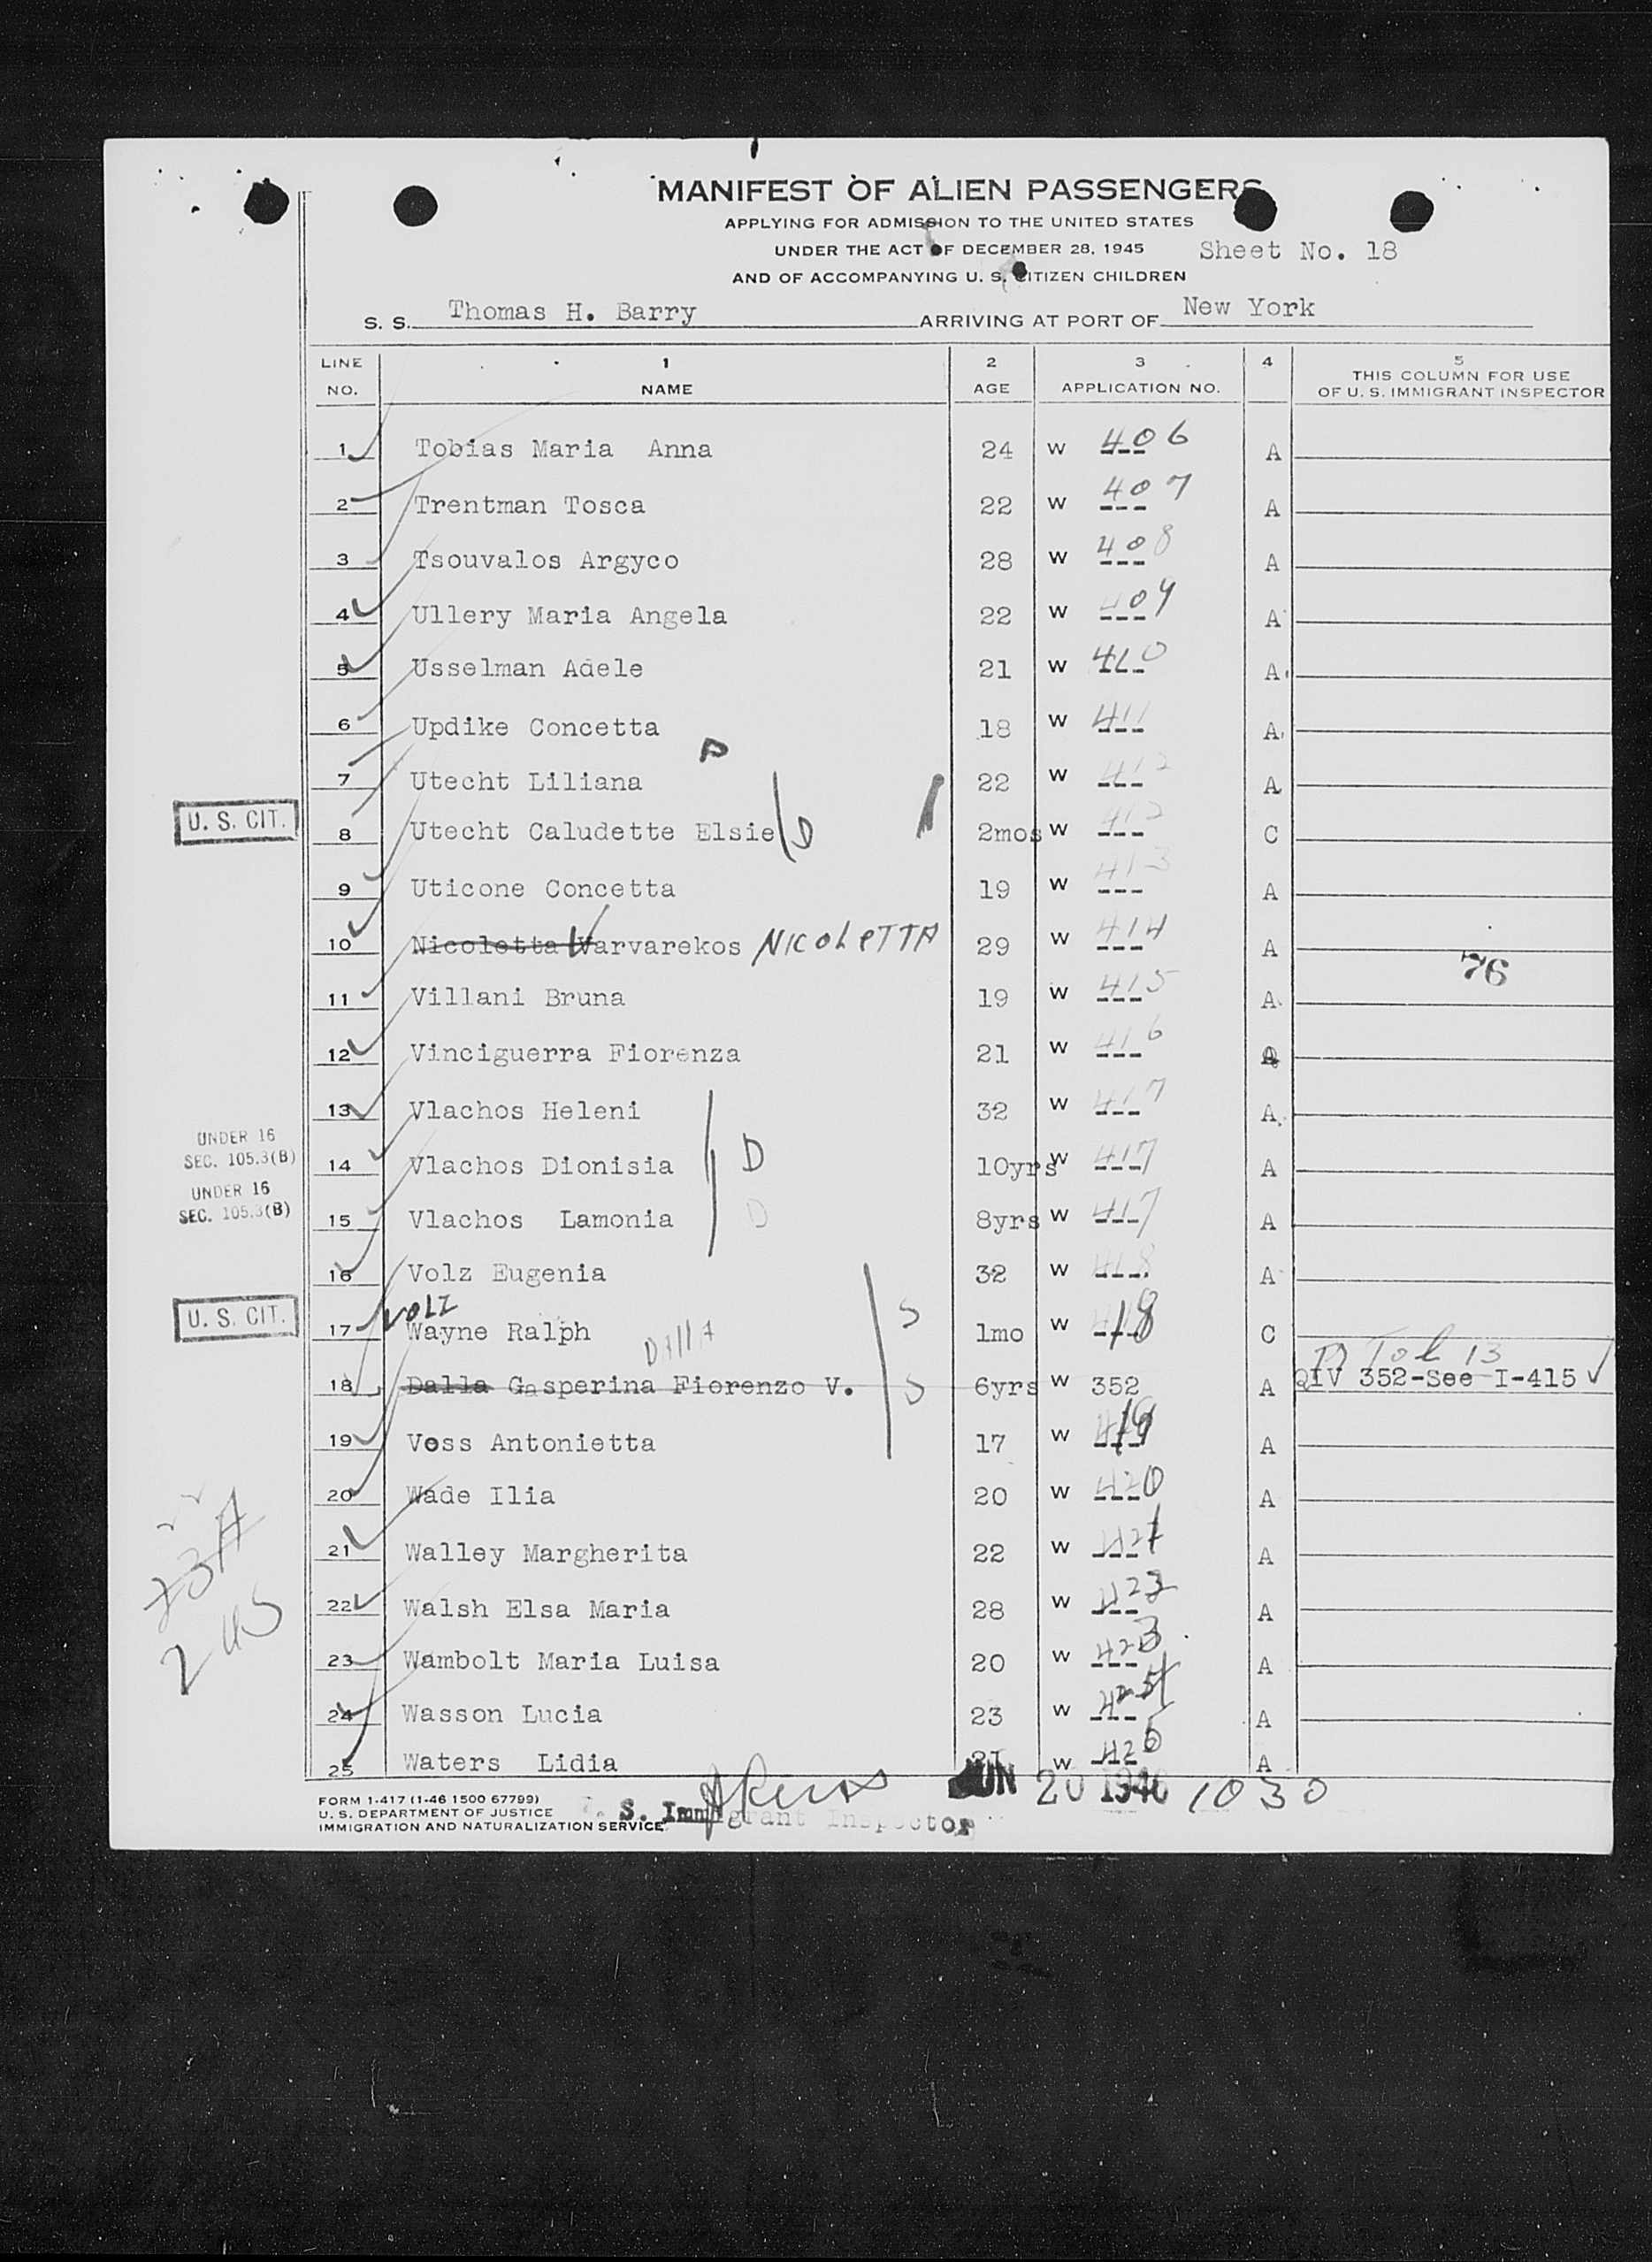 MANIFEST OF ALIEN PASSENGERS
APPLYING FOR ADMISSION TO THE UNITED STATES
UNDER THE ACT OF DECEMBER 28, 1945 Sheet No. 18
AND OF ACCOMPANYING U. S. CITIZEN CHILDREN
S. S. Thomas H. Barry ARRIVING AT PORT OF New York
LINE NO. 1 NAME 2 AGE 3 APPLICATION NO. 4 5 THIS COLUMN FOR USE OF U. S. IMMIGRANT INSPECTOR
1 Tobias Maria Anna 24 W 406 A
2 Trentman Tosca 22 W 407 A
3 Tsouvalos Argyco 28 W 408 A
4 Ullery Maria Angela 22 W 409 A
5 Usselman Adele 21 W 410 A
6 Updike Concetta 18 W 411 A
7 Utecht Liliana 22 W 412 A
U. S. CIT. 8 Utecht Caludette Elsie 2mos W 412 C
9 Uticone Concetta 19 W 413 A
10 Nicoletta Varvarekos NICOLETTA 29 W 414 A
76
11 Villani Bruna 19 W 415 A
12 Vinciguerra Fiorenza 21 W 416 A
13 Vlachos Heleni 32 W 417 A
UNDER 16
SEC. 105.3(B)
14 Vlachos Dionisia D 10yrs W 417 A
UNDER 16
SEC. 105.3(B)
15 Vlachos Lamonia D 8yrs W 417 A
16 Volz Eugenia 32 W 418 A
U. S. CIT. 17 VOLZ Wayne Ralph S 1mo W 418 C
DALLA
18 Dalla Gasperina Fiorenzo V. S 6yrs W 352 A QIV 352-See I-415
19 Voss Antonietta 17 W 419 A
20 Wade Ilia 20 W 420 A
21 Walley Margherita 22 W 421 A
22 Walsh Elsa Maria 28 W 422 A
23 Wambolt Maria Luisa 20 W 423 A
24 Wasson Lucia 23 W A
25 Waters Lidia 21 W 426 A
FORM 1-417 (1-46 1500 67799)
U. S. DEPARTMENT OF JUSTICE
IMMIGRATION AND NATURALIZATION SERVICE
U. S. Immigrant Inspector
JUN 20 1946 1030